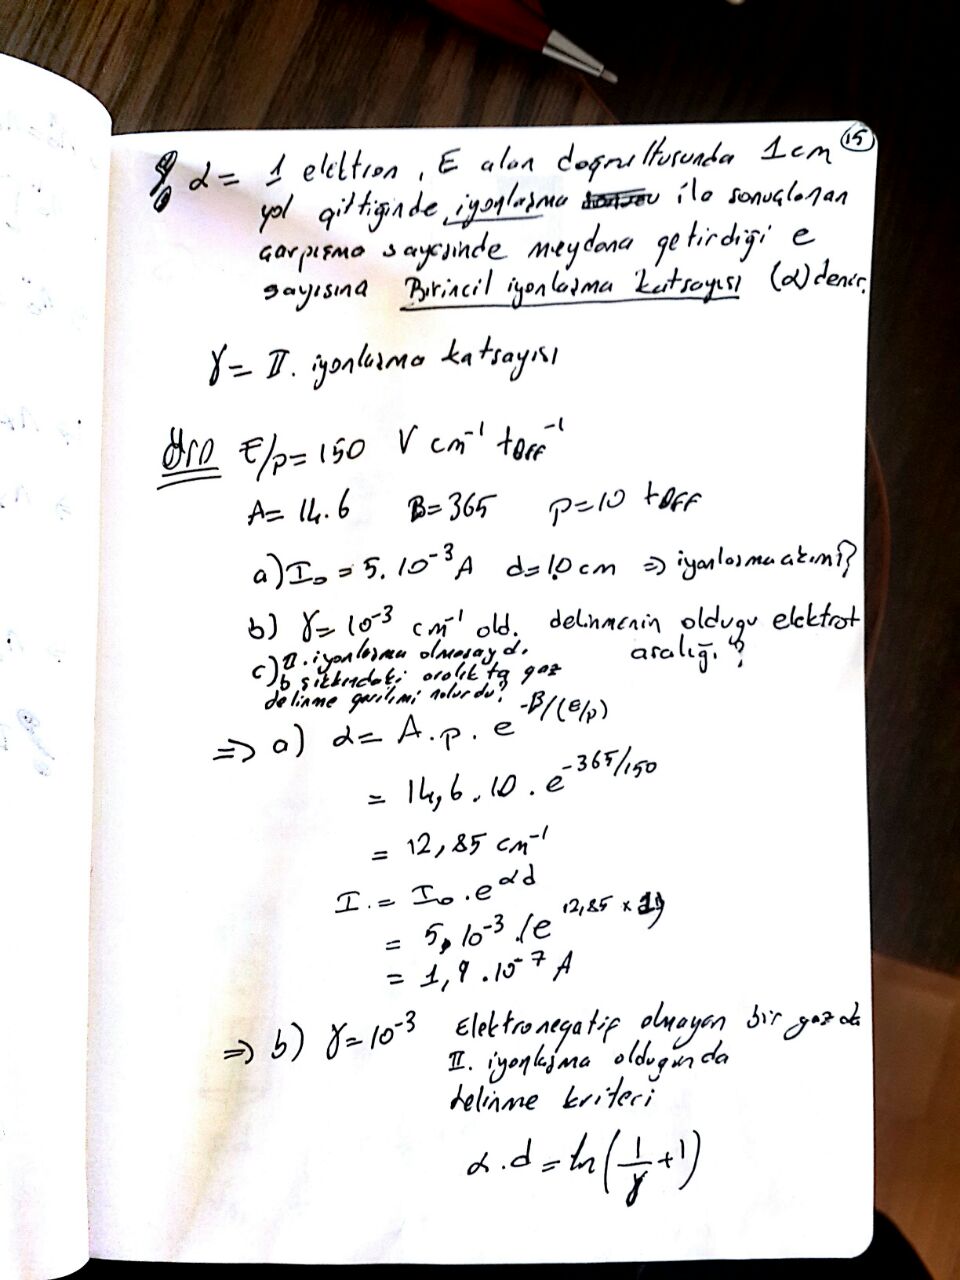 15
α = 1 elektron, E alan doğrultusunda 1cm
yol gittiğinde iyonlaşma ile sonuçlanan
çarpışma sayesinde meydana getirdiği e
sayısına Birincil iyonlaşma katsayısı (α) denir.
γ = II. iyonlaşma katsayısı
E/p = 150 V cm⁻¹ torr⁻¹
A = 14.6 B = 365 p = 10 torr
a) I₀ = 5.10⁻³ A d = 1.0 cm ⇒ iyonlaşma akımı?
b) γ = 10⁻³ cm⁻¹ old. delinmenin olduğu elektrot
aralığı?
c) II. iyonlaşma olmasaydı
b şıkkındaki aralıkta gaz
delinme gerilimi nolurdu?
⇒ a) α = A.p.e^-B/(E/p)
= 14,6.10.e^-365/150
= 12,85 cm⁻¹
I = I₀.e^αd
= 5.10⁻³.(e^12,85 x
= 1,9.10⁻⁷ A
⇒ b) γ = 10⁻³ Elektronegatif olmayan bir gazda
II. iyonlaşma olduğunda
delinme kriteri
α.d = ln(1/γ + 1)